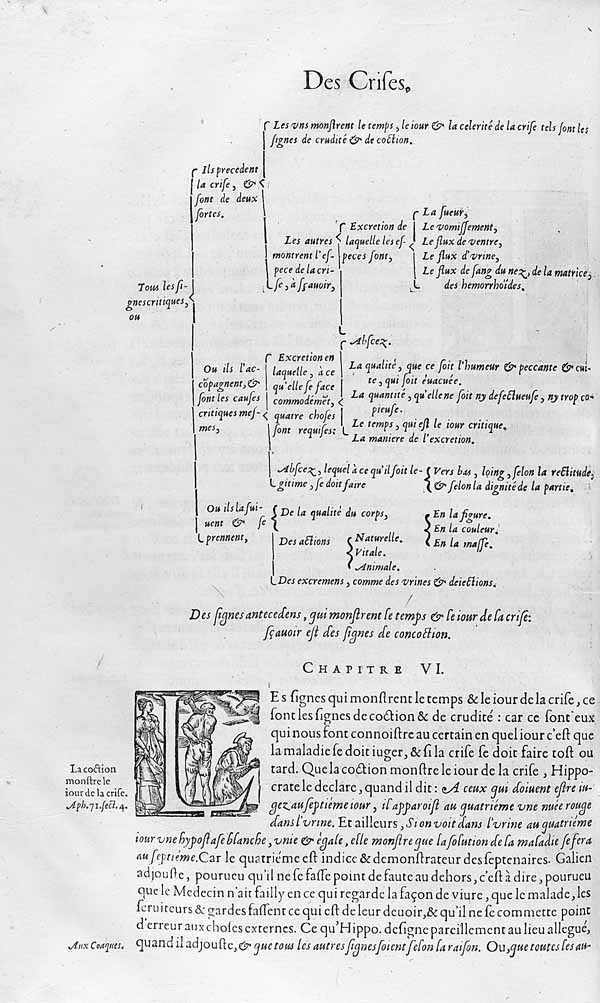 Des Crises.
Les vns monſtrent le temps, le iour & la celerité de la criſe tels ſont les
ſignes de crudité & de coction.
Ils precedent
la criſe, &
ſont de deux
ſortes.
Les autres
montrent l'eſ-
pece de la cri-
ſe, à ſçauoir,
Excretion de
laquelle les eſ-
peces ſont,
La ſueur,
Le vomiſſement,
Le flux de ventre,
Le flux d'vrine,
Le flux de ſang du nez, de la matrice,
des hemorrhoïdes.
Abſcez.
Tous les ſi-
gnes critiques,
ou
Ou ils l'ac-
cōpagnent, &
ſont les cauſes
critiques meſ-
mes,
Excretion en
laquelle, à ce
qu'elle ſe face
commodémēt,
quatre choſes
ſont requiſes:
La qualité, que ce ſoit l'humeur & peccante & cui-
te, qui ſoit éuacuée.
La quantité, qu'elle ne ſoit ny defectueuſe, ny trop co-
pieuſe.
Le temps, qui eſt le iour critique.
La maniere de l'excretion.
Abſcez, lequel à ce qu'il ſoit le-
gitime, ſe doit faire
Vers bas, loing, ſelon la rectitude,
& ſelon la dignité de la partie.
Ou ils la ſui-
uent & ſe
prennent,
De la qualité du corps,
En la figure.
En la couleur.
En la maſſe.
Des actions
Naturelle.
Vitale.
Animale.
Des excremens, comme des vrines & deiections.
Des ſignes antecedens, qui monſtrent le temps & le iour de la criſe:
ſçauoir eſt des ſignes de concoction.
CHAPITRE VI.
LEs ſignes qui monſtrent le temps & le iour de la criſe, ce
ſont les ſignes de coction & de crudité : car ce ſont eux
qui nous font connoiſtre au certain en quel iour c'eſt que
la maladie ſe doit iuger, & ſi la criſe ſe doit faire toſt ou
tard. Que la coction monſtre le iour de la criſe, Hippo-
crate le declare, quand il dit : A ceux qui doiuent eſtre iu-
gez au ſeptieme iour, il apparoiſt au quatriéme vne nuée rouge
dans l'vrine. Et ailleurs, Si on voit dans l'vrine au quatriéme
iour vne hypoſtaſe blanche, vnie & égale, elle monſtre que la ſolution de la maladie ſe fera
au ſeptiéme. Car le quatriéme eſt indice & demonſtrateur des ſeptenaires. Galien
adjouſte, pourueu qu'il ne ſe faſſe point de faute au dehors, c'eſt à dire, pourueu
que le Medecin n'ait failly en ce qui regarde la façon de viure, que le malade, les
ſeruiteurs & gardes faſſent ce qui eſt de leur deuoir, & qu'il ne ſe commette point
d'erreur aux choſes externes. Ce qu'Hippo. deſigne pareillement au lieu allegué,
quand il adjouſte, & que tous les autres ſignes ſoient ſelon la raiſon. Ou, que toutes les au-
La coction
monſtre le
iour de la criſe.
Aph. 71. ſect. 4.
Aux Coaques.